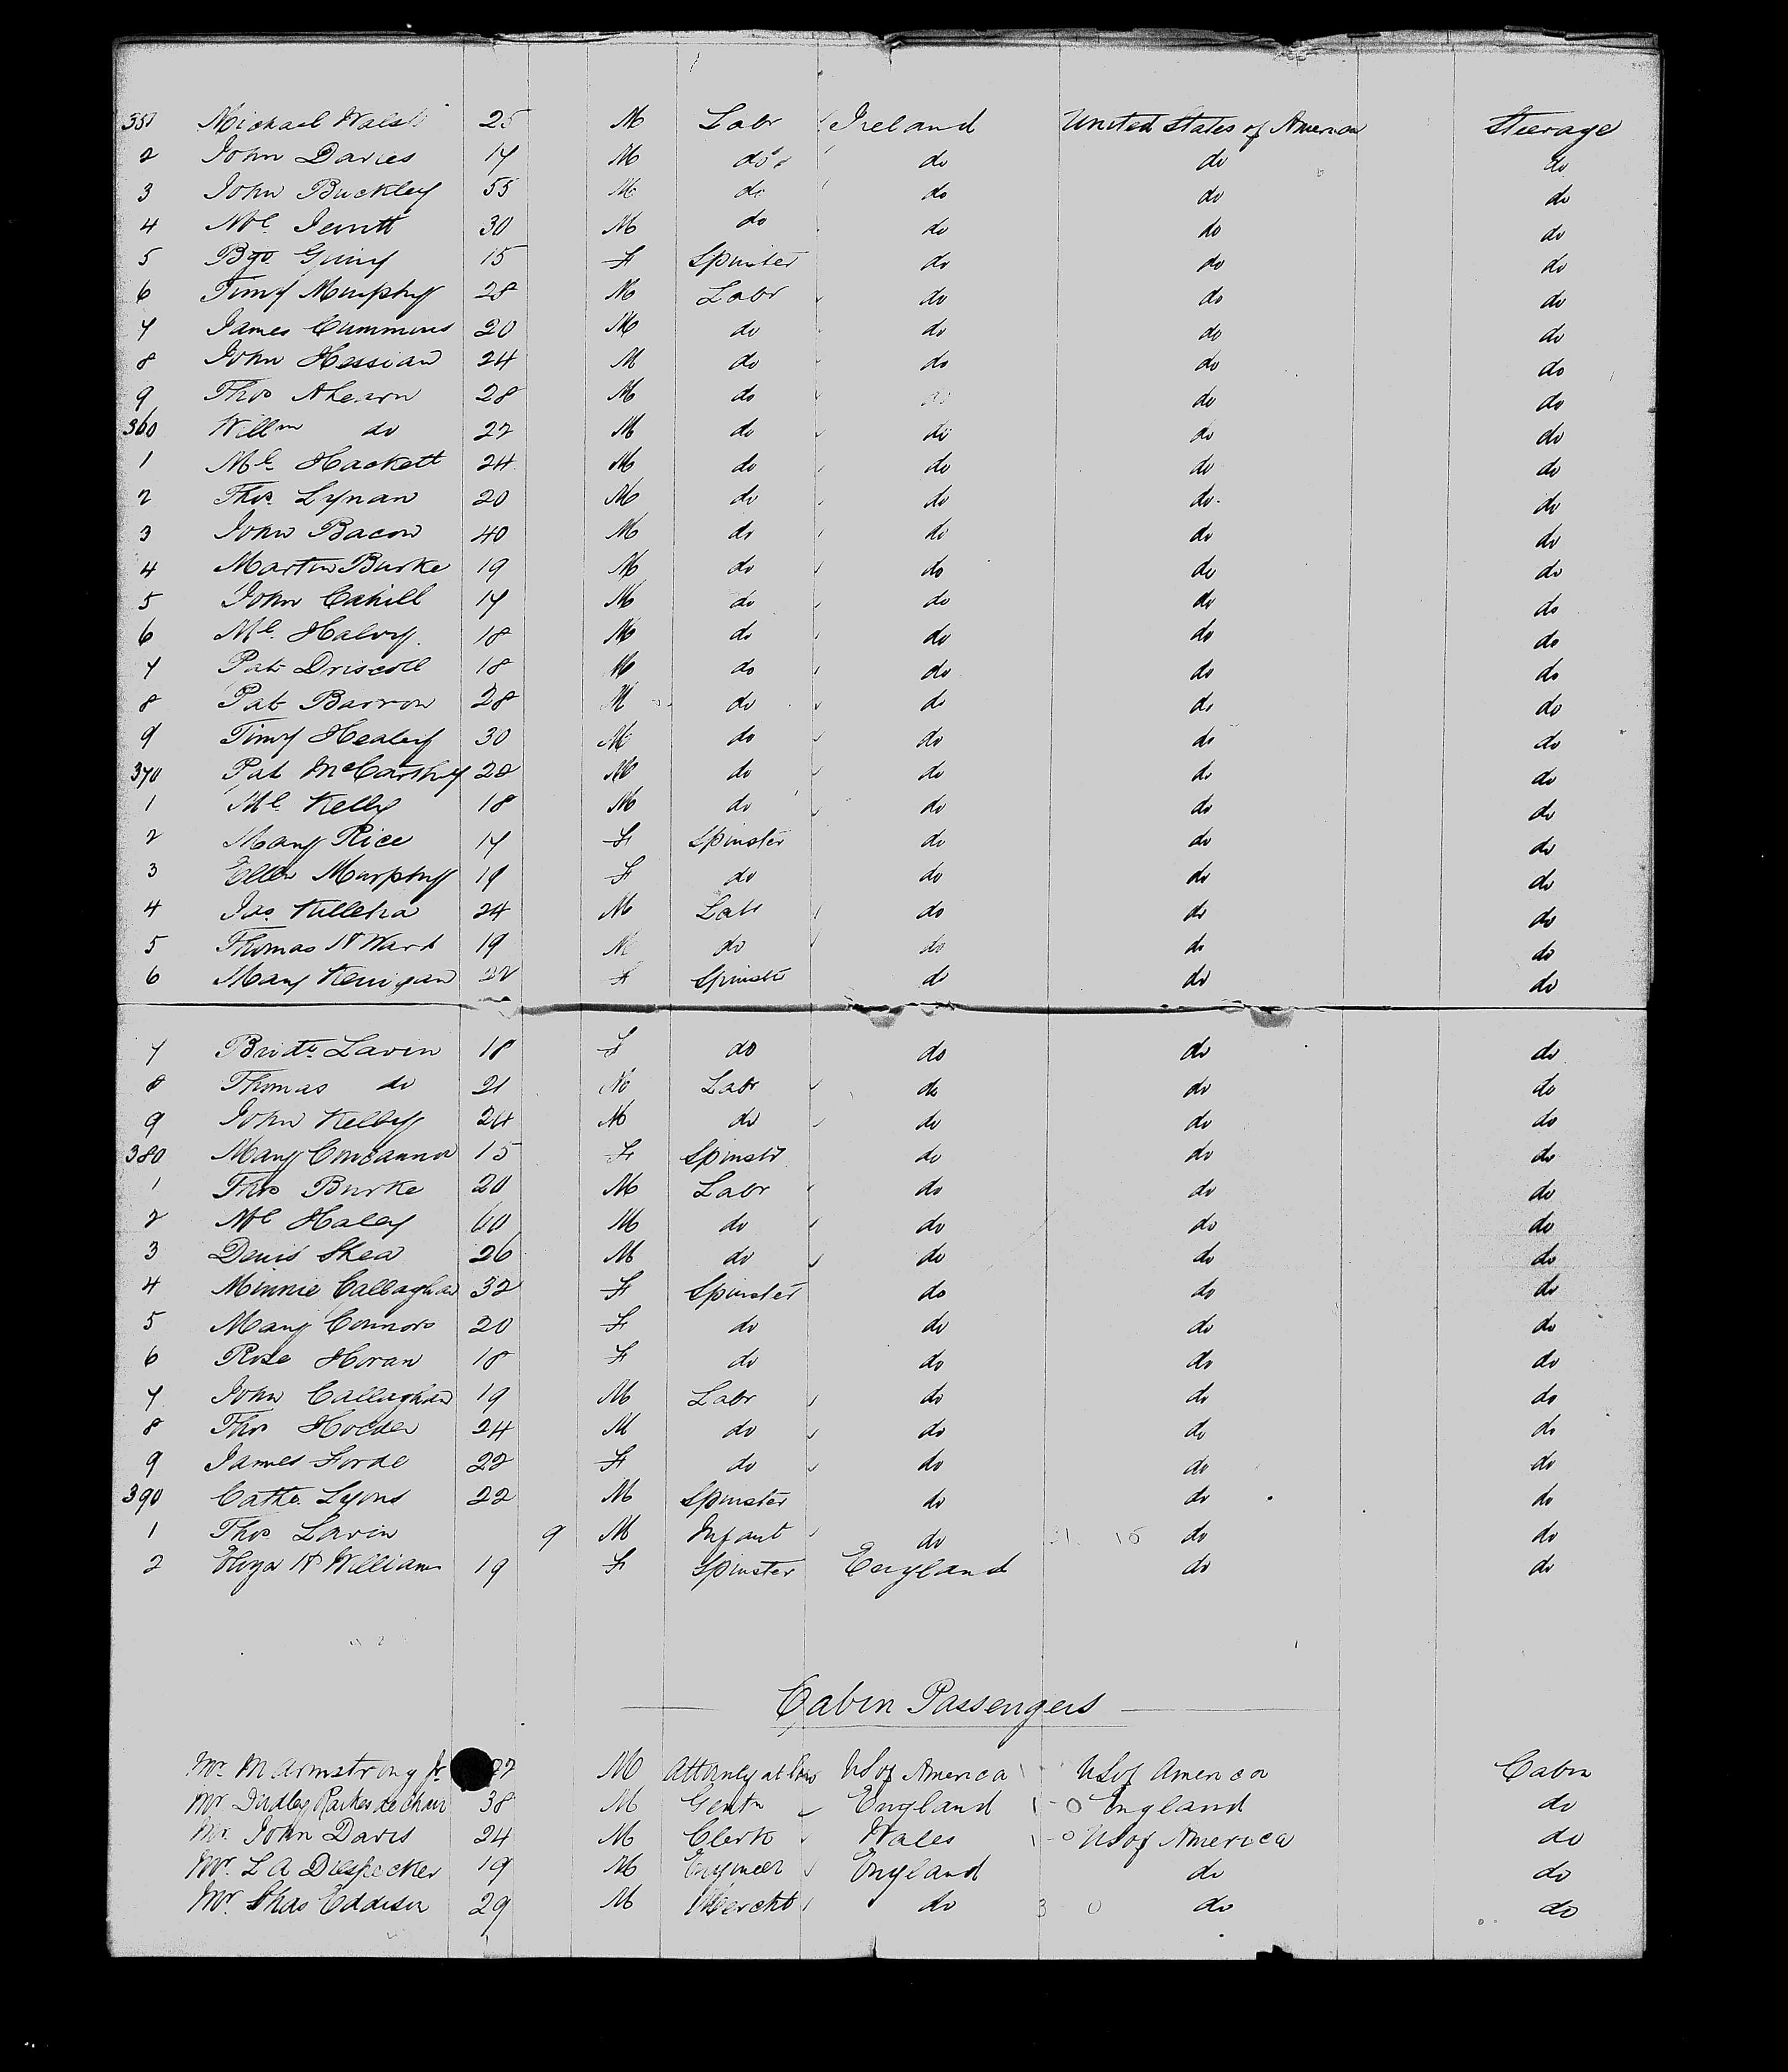 351 Michael Walsh 25 M Labr Ireland United States of America Steerage
2 John Davies 17 M do do do do
3 John Buckley 55 M do do do do
4 Ml 30 M do do do do
5 15 F Spinster do do do
6 Timy Murphy 28 M Labr do do do
7 James Cummins 20 M do do do do
8 John Hessian 24 M do do do do
9 Thos Ahearn 28 M do do do do
360 Willm do 22 M do do do do
1 Ml Hackett 24 M do do do do
2 Thos Lynan 20 M do do do do
3 John Bacon 40 M do do do do
4 Martin Burke 19 M do do do do
5 John Cahill 17 M do do do do
6 Ml Halvy 18 M do do do do
7 Pat Driscoll 18 M do do do do
8 Pat Barron 28 M do do do do
9 Timy Healey 30 M do do do do
370 Pat McCarthy 28 M do do do do
1 Ml Kelly 18 M do do do do
2 Mary Rice 17 F Spinster do do do
3 Ellen Murphy 19 F do do do do
4 Jas 24 M Labr do do do
5 Thomas H Ward 19 M do do do do
6 Mary Kerrigan F Spinstr do do do
7 Bridt Lavin 18 F do do do do
8 Thomas do 21 M Labr do do do
9 John Kelly 24 M do do do do
380 Mary Concannon 15 F Spinstr do do do
1 Thos Burke 20 M Labr do do do
2 Ml Haley 60 M do do do do
3 Denis Shea 26 M do do do do
4 Minnie Callaghan 32 F Spinster do do do
5 Mary Connors 20 F do do do do
6 Rose Horan 18 F do do do do
7 John Callaghan 19 M Labr do do do
8 Thos Holden 24 M do do do do
9 James Forde 22 F do do do do
390 Cathe Lyons 22 M Spinster do do do
1 Thos Lavin 9 M Infant do do do
2 Eliza H Williams 19 F Spinster England do do
Cabin Passengers
Mr M Armstrong Jr M Attorney at Law US of America US of America Cabin
Mr Dudley 38 M Gentn England England do
Mr John Davis 24 M Clerk Wales US of America do
Mr. L A Diespecker 19 M Engineer England do do
Mr Chas Eddison 29 M Mercht do do do